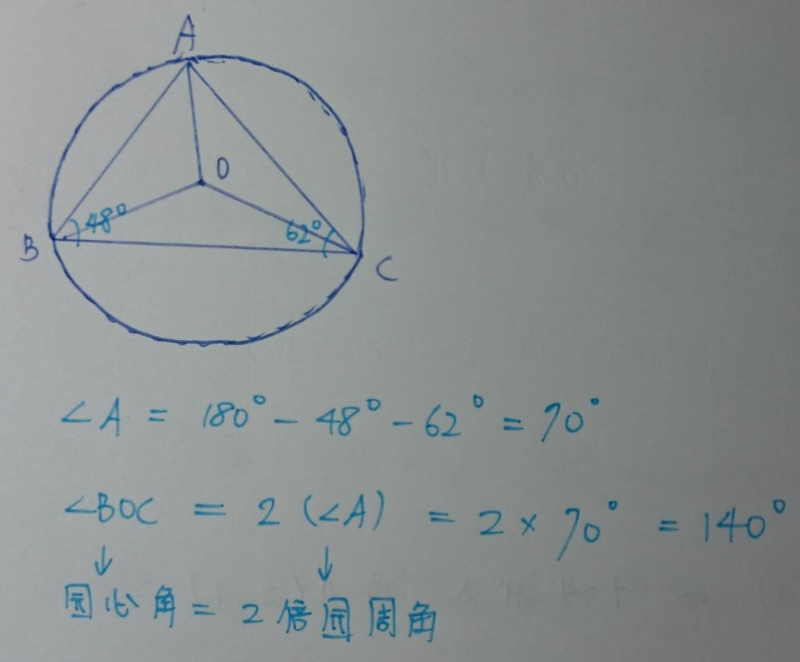 A
O
48°
62°
B
C
∠A = 180° - 48° - 62° = 70°
∠BOC = 2 (∠A) = 2 × 70° = 140°
↓ ↓
园心角 = 2倍园周角